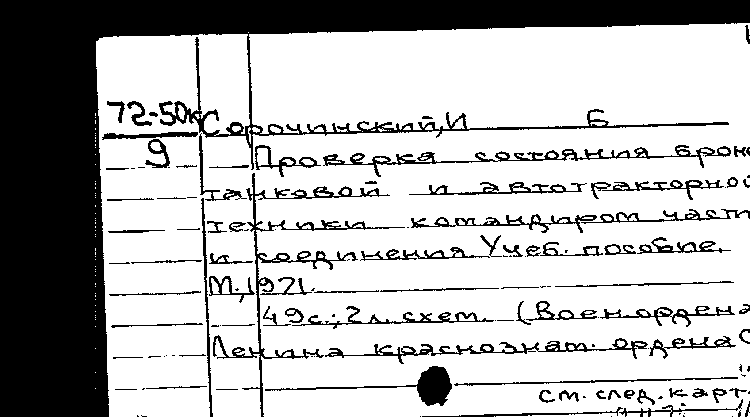 72-50к Сорочинский, И Б
9 Проверка состояния брон
танковой и автотракторной
техники командиром част
и соединения. Учеб. пособие.
М., 1971.
49с.; 2л. схем. (Воен. ордена
Ленина краснознам. ордена С
см. след. карт.